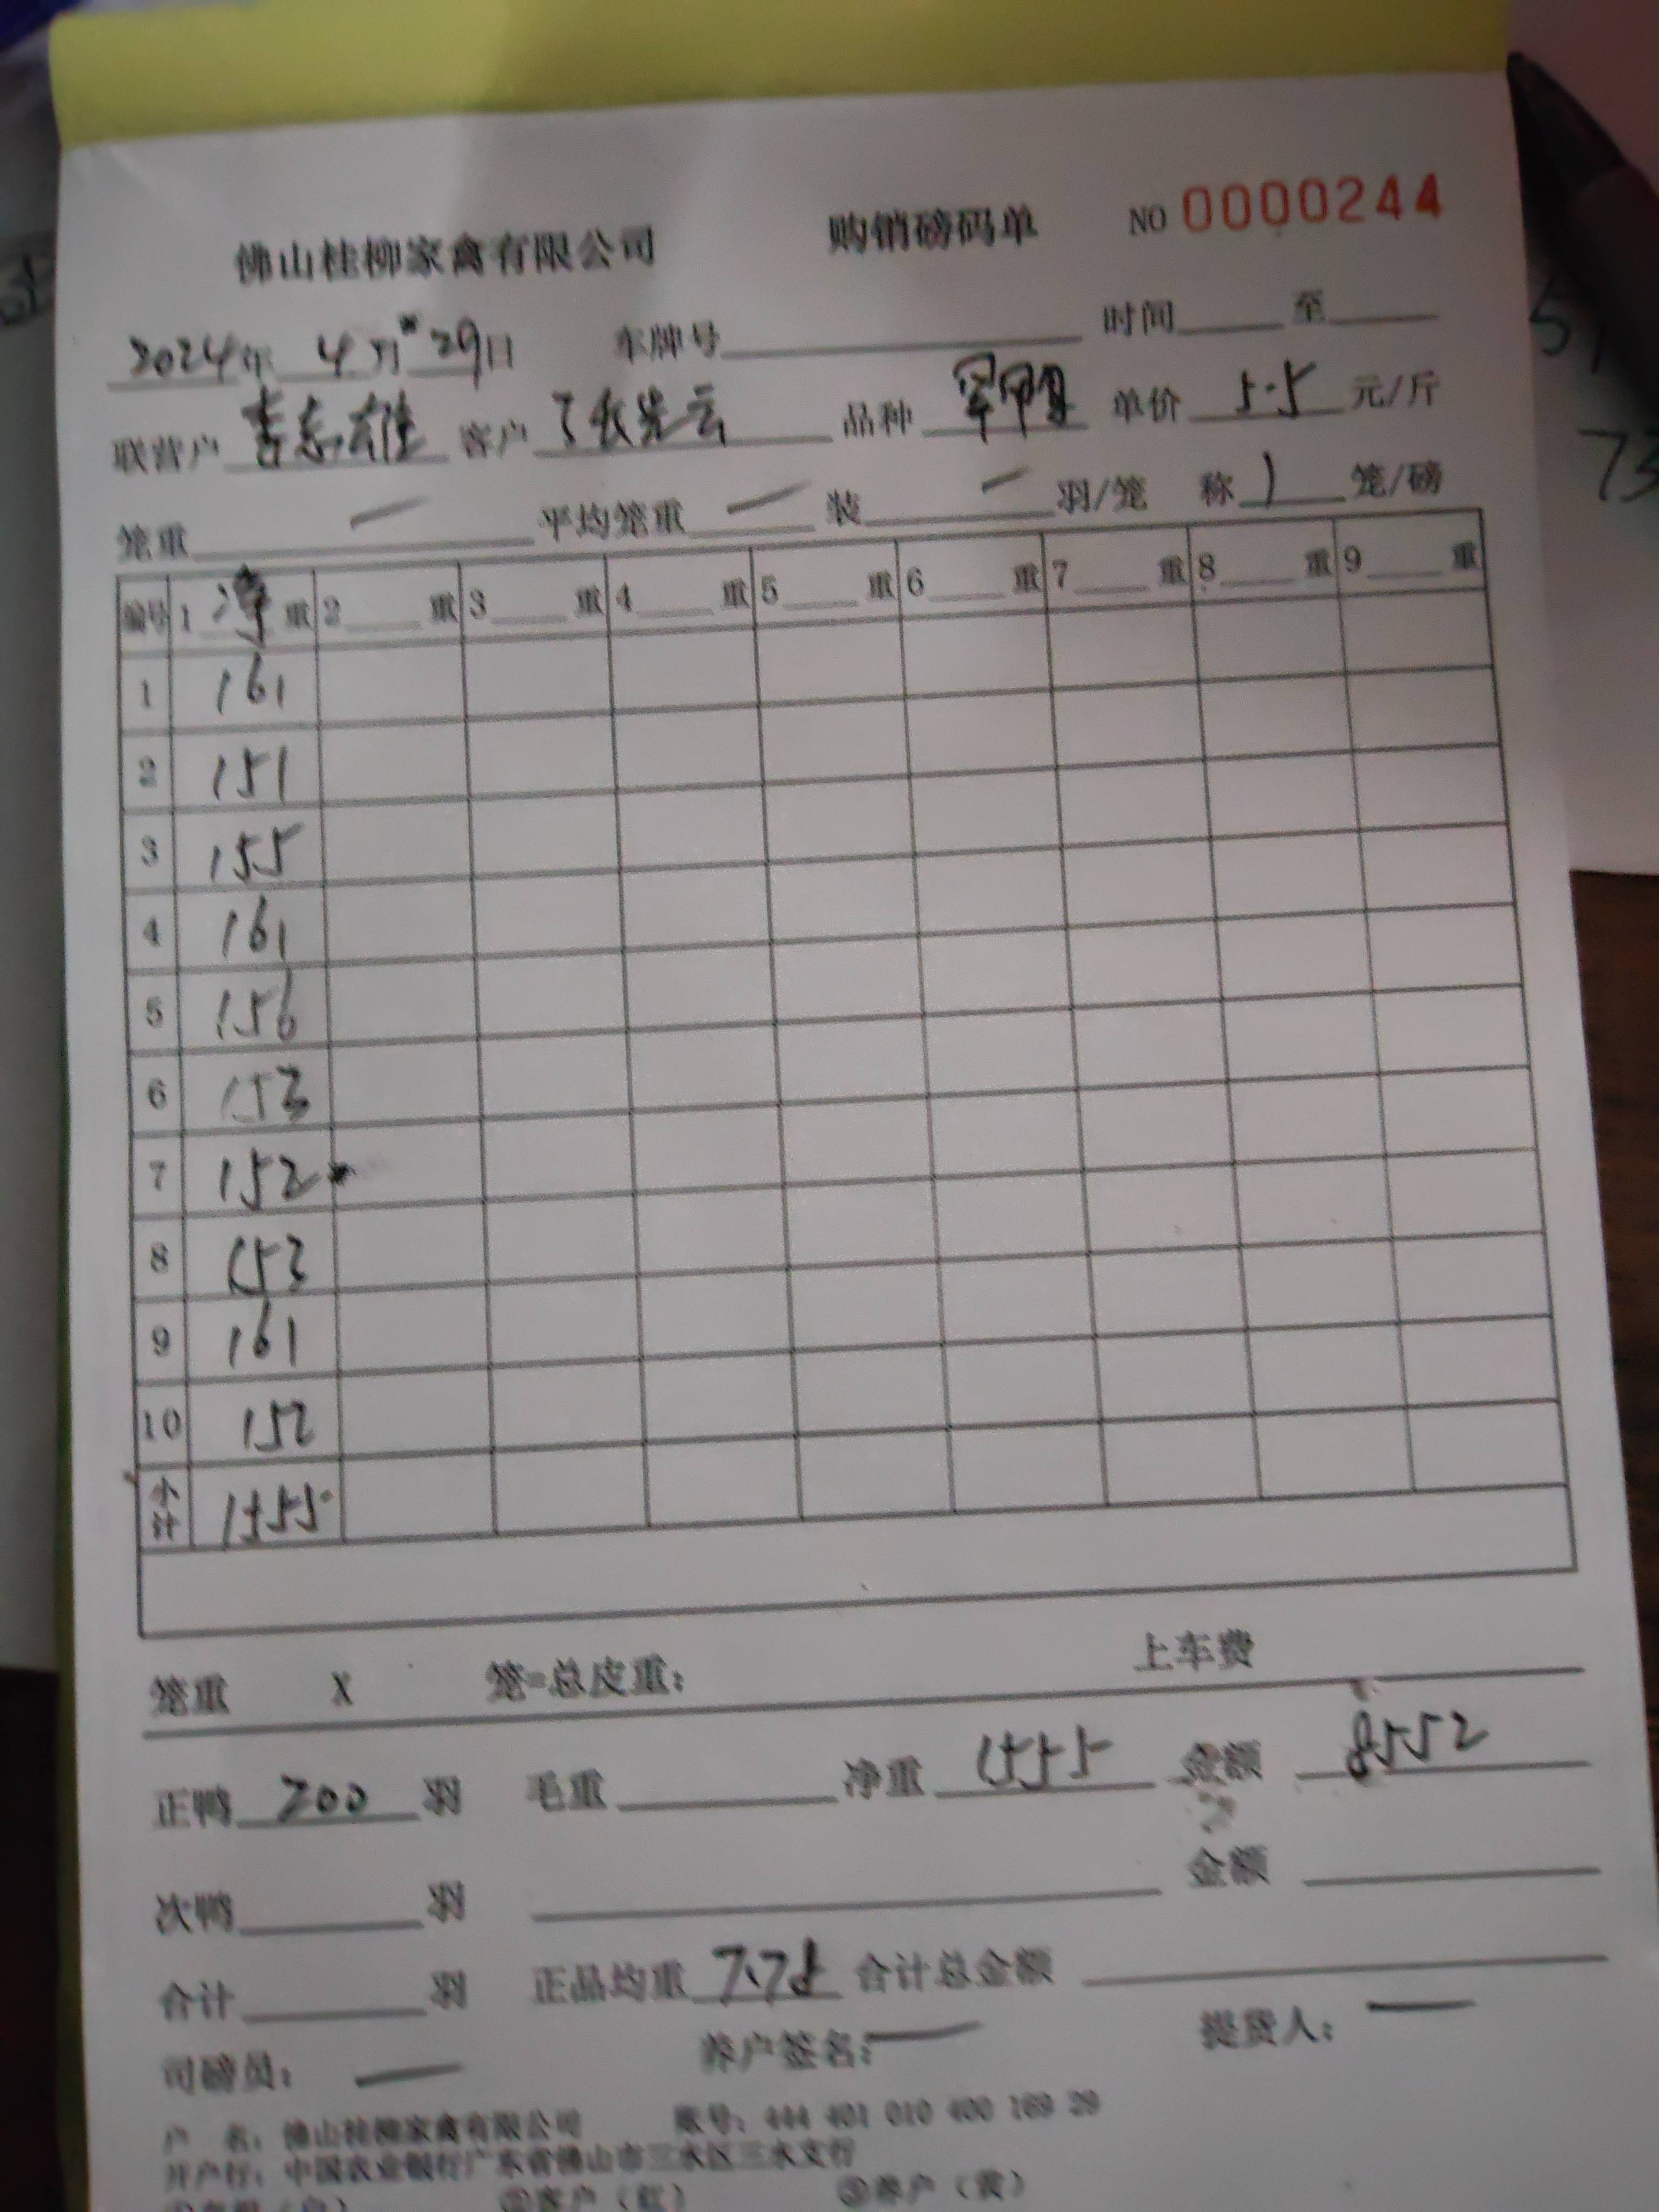 佛山桂柳家禽有限公司 购销磅码单 NO 0000244
2024年 4月 29日 车牌号 时间 至
联营户 李志雄 客户 张先云 品种 单价 5.5 元/斤
笼重 一 平均笼重 一 装 一 羽/笼 称 1 笼/磅
编号 1 净 重 2 重 3 重 4 重 5 重 6 重 7 重 8 重 9 重
1 161
2 151
3 155
4 161
5 156
6 153
7 152
8 153
9 161
10 152
小计 1555
笼重 X 笼=总皮重: 上车费
正鸭 200 羽 毛重 净重 1555 金额 8552
次鸭 羽 金额
合计 羽 正品均重 7.78 合计总金额
司磅员: 一 养户签名: 一 提货人: 一
户 名: 佛山桂柳家禽有限公司 账号: 444 401 010 400 169 29
开户行: 中国农业银行广东省佛山市三水区三水支行
②客户(红) ③养户(黄)